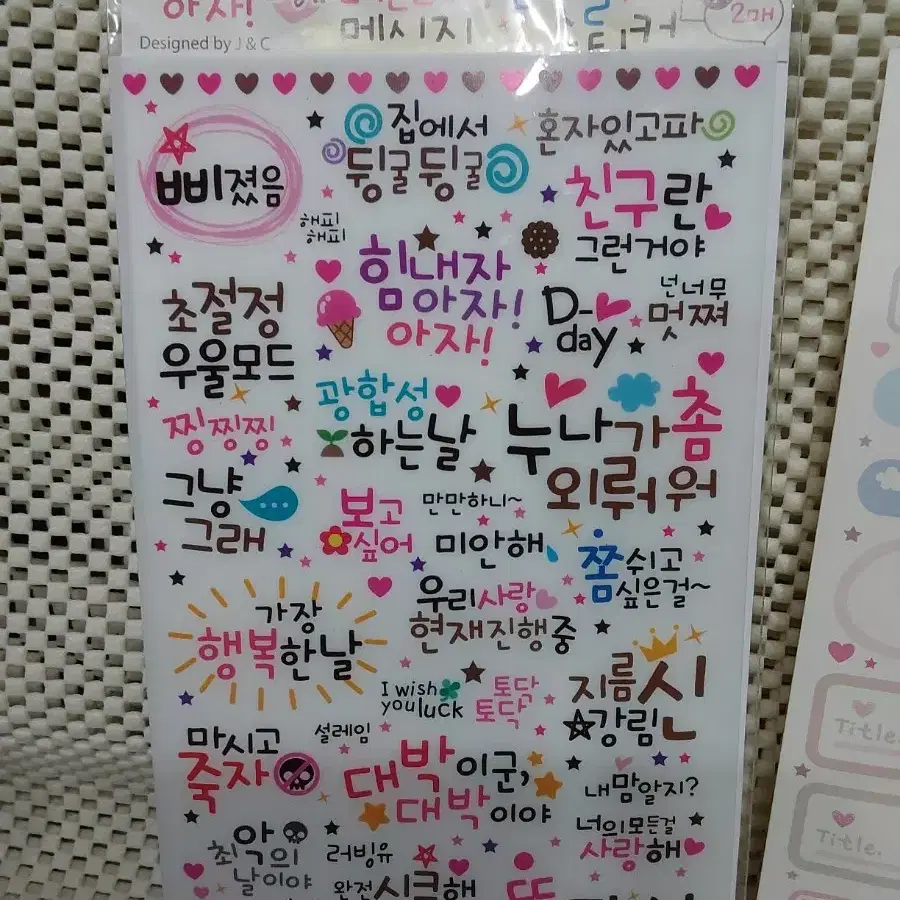 아자!
메시지 스티커
2매
Designed by J & C
삐졌음
집에서
뒹굴뒹굴
혼자있고파
친구란
그런거야
해피
해피
힘내자
아자!
아자!
D-
day
넌너무
멋쪄
초절정
우울모드
광합성
하는날
누나가 촘
외뤄워
찡찡찡
그냥
그래
보고
싶어
만만하니~
미안해
쫌쉬고
싶은걸~
가장
행복한날
우리사랑
현재진행중
I wish
you luck
토닥
토닥
지름신
강림
마시고
죽자
설레임
대박이군,
대박이야
내맘알지?
너의모든걸
사랑해
악
최악의
날이야
러빙유
완전시크해
Title.
Title.